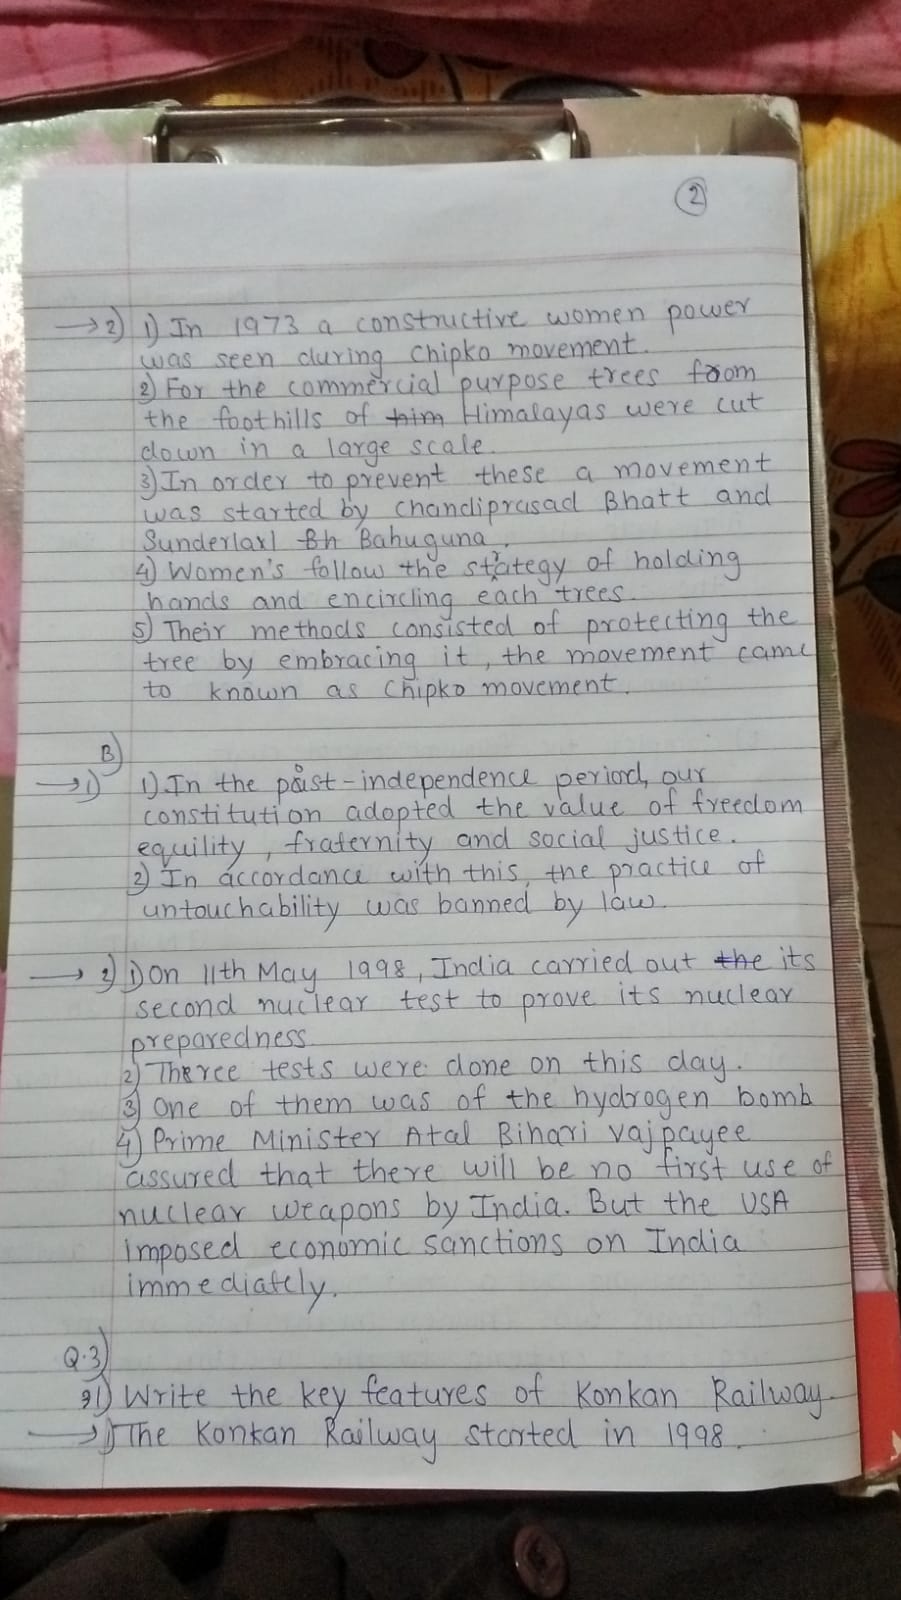 2
→ 2) 1) In 1973 a constructive women power
was seen during Chipko movement.
2) For the commercial purpose trees from
the foothills of him Himalayas were cut
down in a large scale.
3) In order to prevent these a movement
was started by Chandiprasad Bhatt and
Sunderlarl Bh Bahuguna.
4) Women's follow the strategy of holding
hands and encircling each trees.
5) Their methods consisted of protecting the
tree by embracing it, the movement came
to known as Chipko movement.
B)
→ 1) 1) In the post-independence period, our
constitution adopted the value of freedom
equility, fraternity and social justice.
2) In accordance with this, the practice of
untouchability was banned by law.
→ 2) 1) On 11th May 1998, India carried out the its
second nuclear test to prove its nuclear
preparedness.
2) Theree tests were done on this day.
3) One of them was of the hydrogen bomb
4) Prime Minister Atal Bihari vajpayee
assured that there will be no first use of
nuclear weapons by India. But the USA
imposed economic sanctions on India
immediately.
Q.3)
1) Write the key features of Konkan Railway.
→ 1) The Konkan Railway started in 1998.